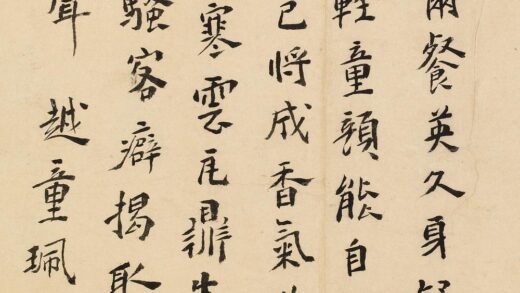 餐英久身
輕童頭能自
已將成香氣
寒雲瓦鼎
騷客癖揭取
越童珮